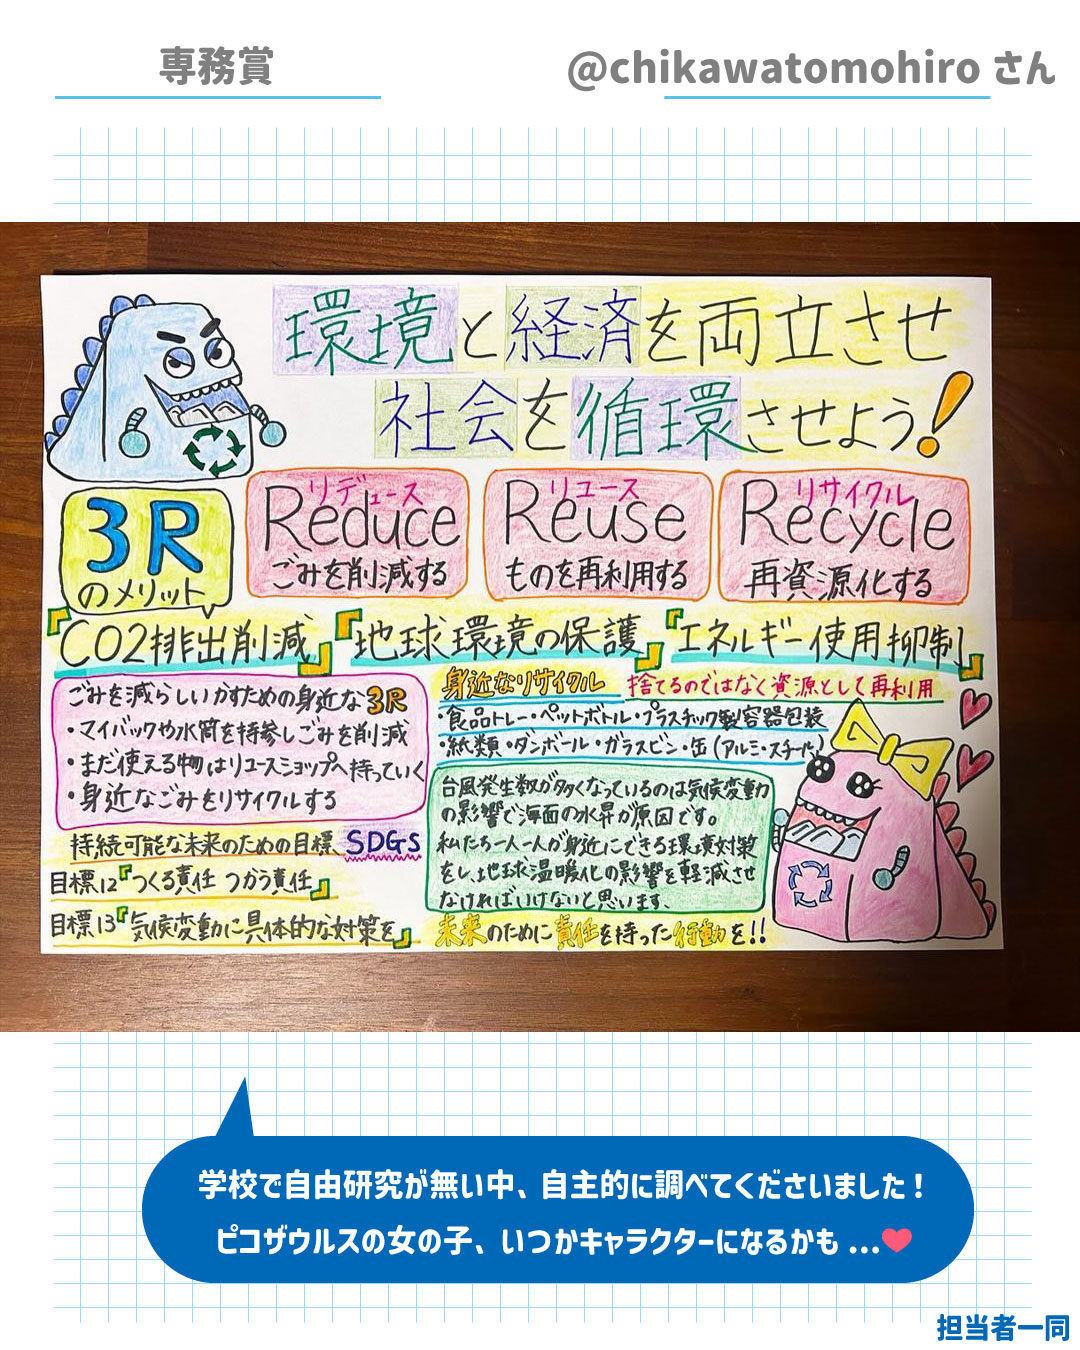 専務賞
@chikawatomohiro さん
環境と経済を両立させ
社会を循環させよう！
3R
のメリット
リデュース
Reduce
ごみを削減する
リユース
Reuse
ものを再利用する
リサイクル
Recycle
再資源化する
『CO2排出削減』『地球環境の保護』『エネルギー使用抑制』
ごみを減らしいかすための身近な3R
・マイバックや水筒を持参しごみを削減
・まだ使える物はリユースショップへ持っていく
・身近なごみをリサイクルする
持続可能な未来のための目標、SDGS
目標12『つくる責任 つかう責任』
目標13『気候変動に具体的な対策を』
身近なリサイクル 捨てるのではなく資源として再利用
・食品トレー・ペットボトル・プラスチック製容器包装
・紙類・ダンボール・ガラスビン・缶(アルミ・スチール)
台風発生数が多くなっているのは気候変動
の影響で海面の水昇が原因です。
私たち一人一人が身近にできる環境対策
をし、地球温暖化の影響を軽減させ
なければいけないと思います、
未来のために責任を持った行動を!!
学校で自由研究が無い中、自主的に調べてくださいました！
ピコザウルスの女の子、いつかキャラクターになるかも …❤
担当者一同